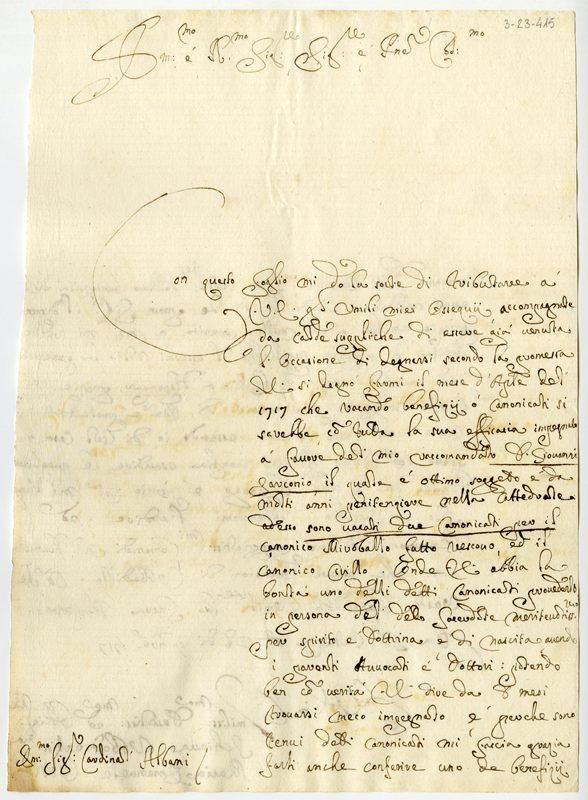 3-23-415
Em:mo é R:mo Sig:re Sig:re é Pne Col:mo
Con questo foglio mi dò la sorte di tributare à
V.E. gl' umili miei ossequij accompagnate
da calde suppliche di essere già venuta
l'occasione di degnarsi secondo la promessa
si degnò farmi il mese d'Aprle del
1717 che vacando benefizij ò Canonicati si
sarebbe cò tutta la sua efficacia impegnato
à favore del mio raccomandato D. Giovanni
il quale è ottimo soggetto e da
molti anni penitenziere nella Cattedrale
adesso sono vacati due Canonicati per il
Canonico fatto Vescovo, ed il
Canonico Cirillo onde V.E. abbia la
bontà uno delli detti Canonicati provederlo
in persona del detto Sacerdote meritevoliss:mo
per spirito e dottrina e di nascita avendo
i parenti Avvocati é Dottori: potendo
ben cò verità V.E. dire da mesi
trovarsi meco impegnato e perche sono
tenui detti Canonicati mi faccia grazia
farli anche conferire uno de benefizij
Em:mo Sig:r Cardinal Albani